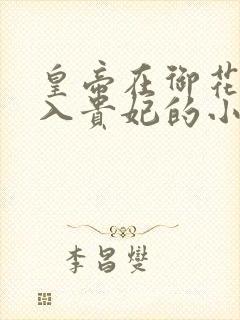 皇帝在御花
入贵妃的小
李昌燮